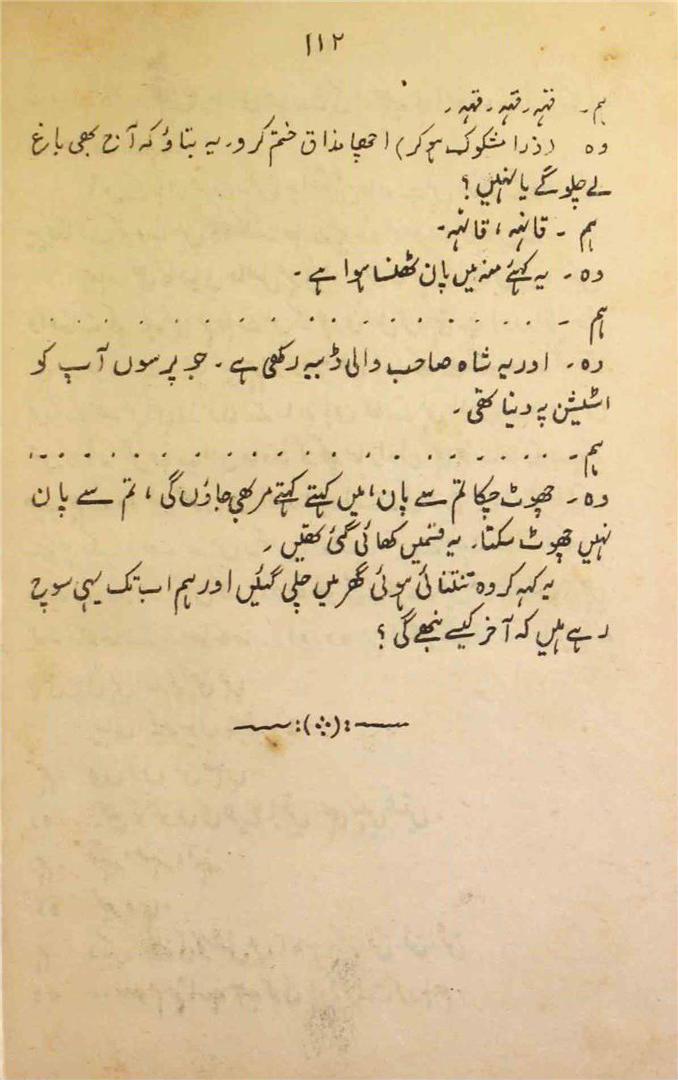 ۱۱۲
ہم۔ قہہ۔ قہہ۔ قہہ۔
وہ (ذرا مشکوک ہو کر) اچھا مذاق ختم کرو۔ یہ بتاؤ کہ آج بھی باغ
لے چلو گے یا نہیں؟
ہم ۔ قانہہ، قانہہ۔
وہ۔ یہ کہئے منہ میں پان ٹھنسا ہوا ہے۔
ہم ۔ . . . . . . . . . . . . . . . . . .
وہ۔ اور یہ شاہ صاحب والی ڈبیہ رکھی ہے۔ جو پرسوں آپ کو
اسٹیشن پہ دینا تھی۔
ہم۔ . . . . . . . . . . . . . . . . . .
وہ۔ چھوٹ چکا تم سے پان، میں کہتے کہتے مر بھی جاؤں گی، تم سے پان
نہیں چھوٹ سکتا۔ یہ قسمیں کھائی گئی تھیں۔
یہ کہہ کر وہ تنتنائی ہوئی گھر میں چلی گئیں اور ہم اب تک یہی سوچ
رہے ہیں کہ آخر کیسے نبھے گی؟